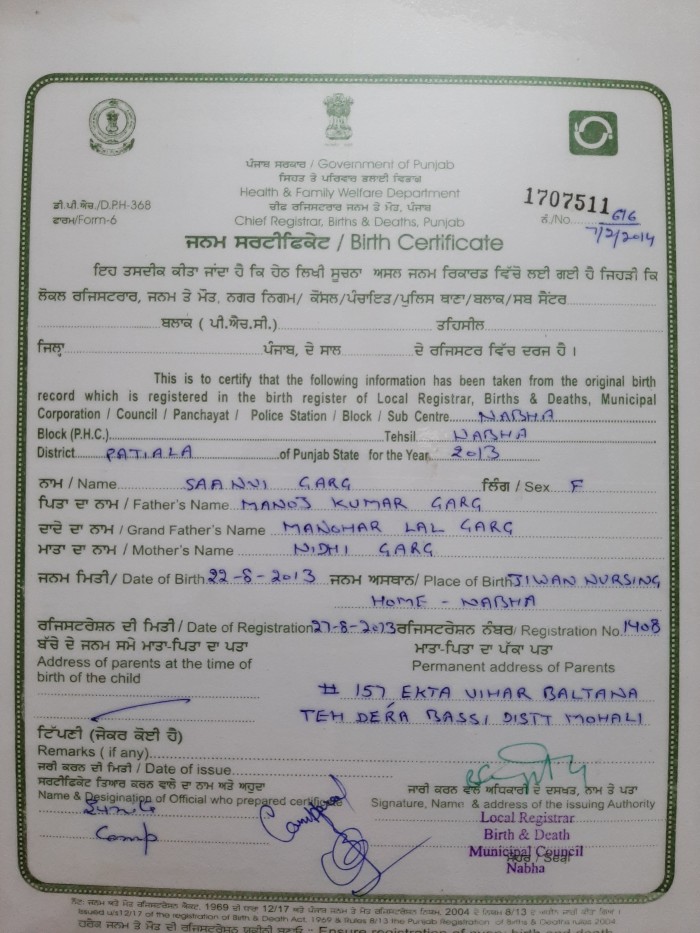 ਪੰਜਾਬ ਸਰਕਾਰ / Government of Punjab
ਸਿਹਤ ਤੇ ਪਰਿਵਾਰ ਭਲਾਈ ਵਿਭਾਗ
Health & Family Welfare Department
ਡੀ.ਪੀ.ਐਚ./D.P.H-368
ਚੀਫ ਰਜਿਸਟਰਾਰ ਜਨਮ ਤੇ ਮੌਤ, ਪੰਜਾਬ
1707511
ਫਾਰਮ/Form-6
Chief Registrar, Births & Deaths, Punjab
ਨੰ./No. 616
7/2/2014
ਜਨਮ ਸਰਟੀਫਿਕੇਟ / Birth Certificate
ਇਹ ਤਸਦੀਕ ਕੀਤਾ ਜਾਂਦਾ ਹੈ ਕਿ ਹੇਠ ਲਿਖੀ ਸੂਚਨਾ ਅਸਲ ਜਨਮ ਰਿਕਾਰਡ ਵਿੱਚੋਂ ਲਈ ਗਈ ਹੈ ਜਿਹੜੀ ਕਿ
ਲੋਕਲ ਰਜਿਸਟਰਾਰ, ਜਨਮ ਤੇ ਮੌਤ, ਨਗਰ ਨਿਗਮ/ ਕੌਂਸਲ/ਪੰਚਾਇਤ/ਪੁਲਿਸ ਥਾਣਾ/ਬਲਾਕ/ਸਬ ਸੈਂਟਰ
ਬਲਾਕ ( ਪੀ.ਐਚ.ਸੀ.) ਤਹਿਸੀਲ
ਜਿਲ੍ਹਾ ਪੰਜਾਬ, ਦੇ ਸਾਲ ਦੇ ਰਜਿਸਟਰ ਵਿੱਚ ਦਰਜ ਹੈ ।
This is to certify that the following information has been taken from the original birth
record which is registered in the birth register of Local Registrar, Births & Deaths, Municipal
Corporation / Council / Panchayat / Police Station / Block / Sub Centre NABHA
Block (P.H.C.) Tehsil NABHA
District PATIALA of Punjab State for the Year 2013
ਨਾਮ / Name SAANVI GARG ਲਿੰਗ / Sex F
ਪਿਤਾ ਦਾ ਨਾਮ / Father's Name MANOJ KUMAR GARG
ਦਾਦੇ ਦਾ ਨਾਮ / Grand Father's Name MANOHAR LAL GARG
ਮਾਤਾ ਦਾ ਨਾਮ / Mother's Name NIDHI GARG
ਜਨਮ ਮਿਤੀ/ Date of Birth 22-8-2013 ਜਨਮ ਅਸਥਾਨ/ Place of Birth JIWAN NURSING
HOME - NABHA
ਰਜਿਸਟਰੇਸ਼ਨ ਦੀ ਮਿਤੀ / Date of Registration 27-8-2013 ਰਜਿਸਟਰੇਸ਼ਨ ਨੰਬਰ/ Registration No.
ਬੱਚੇ ਦੇ ਜਨਮ ਸਮੇ ਮਾਤਾ-ਪਿਤਾ ਦਾ ਪਤਾ ਮਾਤਾ-ਪਿਤਾ ਦਾ ਪੱਕਾ ਪਤਾ
Address of parents at the time of Permanent address of Parents
birth of the child
# 157 EKTA VIHAR BALTANA
TEH DERA BASSI DISTT MOHALI
ਟਿੱਪਣੀ (ਜੇਕਰ ਕੋਈ ਹੈ)
Remarks ( if any)
ਜਾਰੀ ਕਰਨ ਦੀ ਮਿਤੀ / Date of issue
ਸਰਟੀਫਿਕੇਟ ਤਿਆਰ ਕਰਨ ਵਾਲੇ ਦਾ ਨਾਮ ਅਤੇ ਅਹੁਦਾ ਜਾਰੀ ਕਰਨ ਵਾਲੇ ਅਧਿਕਾਰੀ ਦੇ ਦਸਖਤ, ਨਾਮ ਤੇ ਪਤਾ
Name & Designation of Official who prepared certificate Signature, Name & address of the issuing Authority
Comp
Local Registrar
Birth & Death
Municipal Council
ਮੋਹਰ / Seal
Nabha
ਨੋਟ: ਜਨਮ ਅਤੇ ਮੌਤ ਰਜਿਸਟਰੇਸ਼ਨ ਐਕਟ, 1969 ਦੀ ਧਾਰਾ 12/17 ਅਤੇ ਪੰਜਾਬ ਜਨਮ ਅਤੇ ਮੌਤ ਰਜਿਸਟਰੇਸ਼ਨ ਨਿਯਮ, 2004 ਦੇ ਨਿਯਮ 8/13 ਦੇ ਅਧੀਨ ਜਾਰੀ ਕੀਤਾ ਗਿਆ ।
Issued u/s12/17 of the registration of Birth & Death Act, 1969 & Rules 8/13 the Punjab Registration of Births & Deaths rules 2004